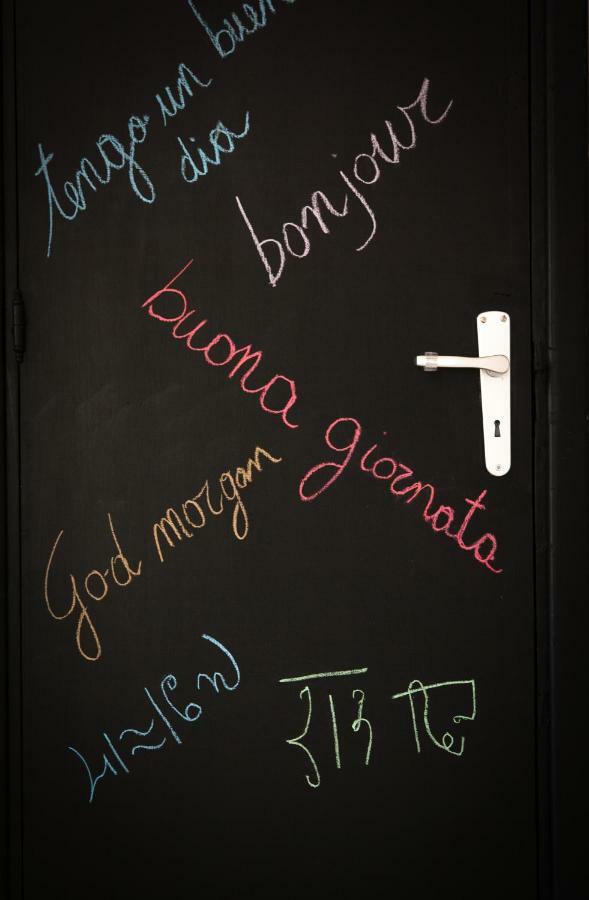 tengo un buen
dia
bonjour
buona giornata
God morgan